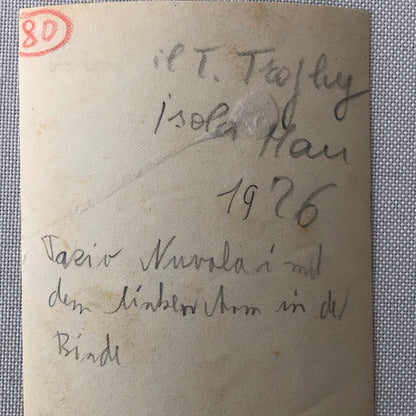 80
il T. Trophy
isola Man
1926
Tazio Nuvolari mit
dem linken Arm in der
Binde